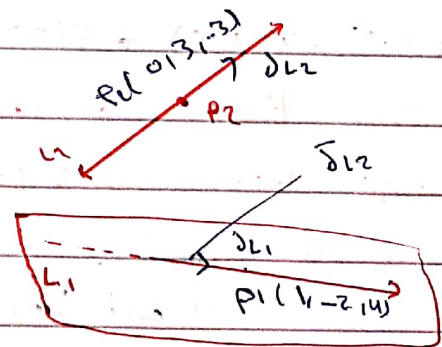 P2(0,3,-3)
d̄L2
P2
L2
d̄L2
d̄L1
L1
P1(1,-2,4)